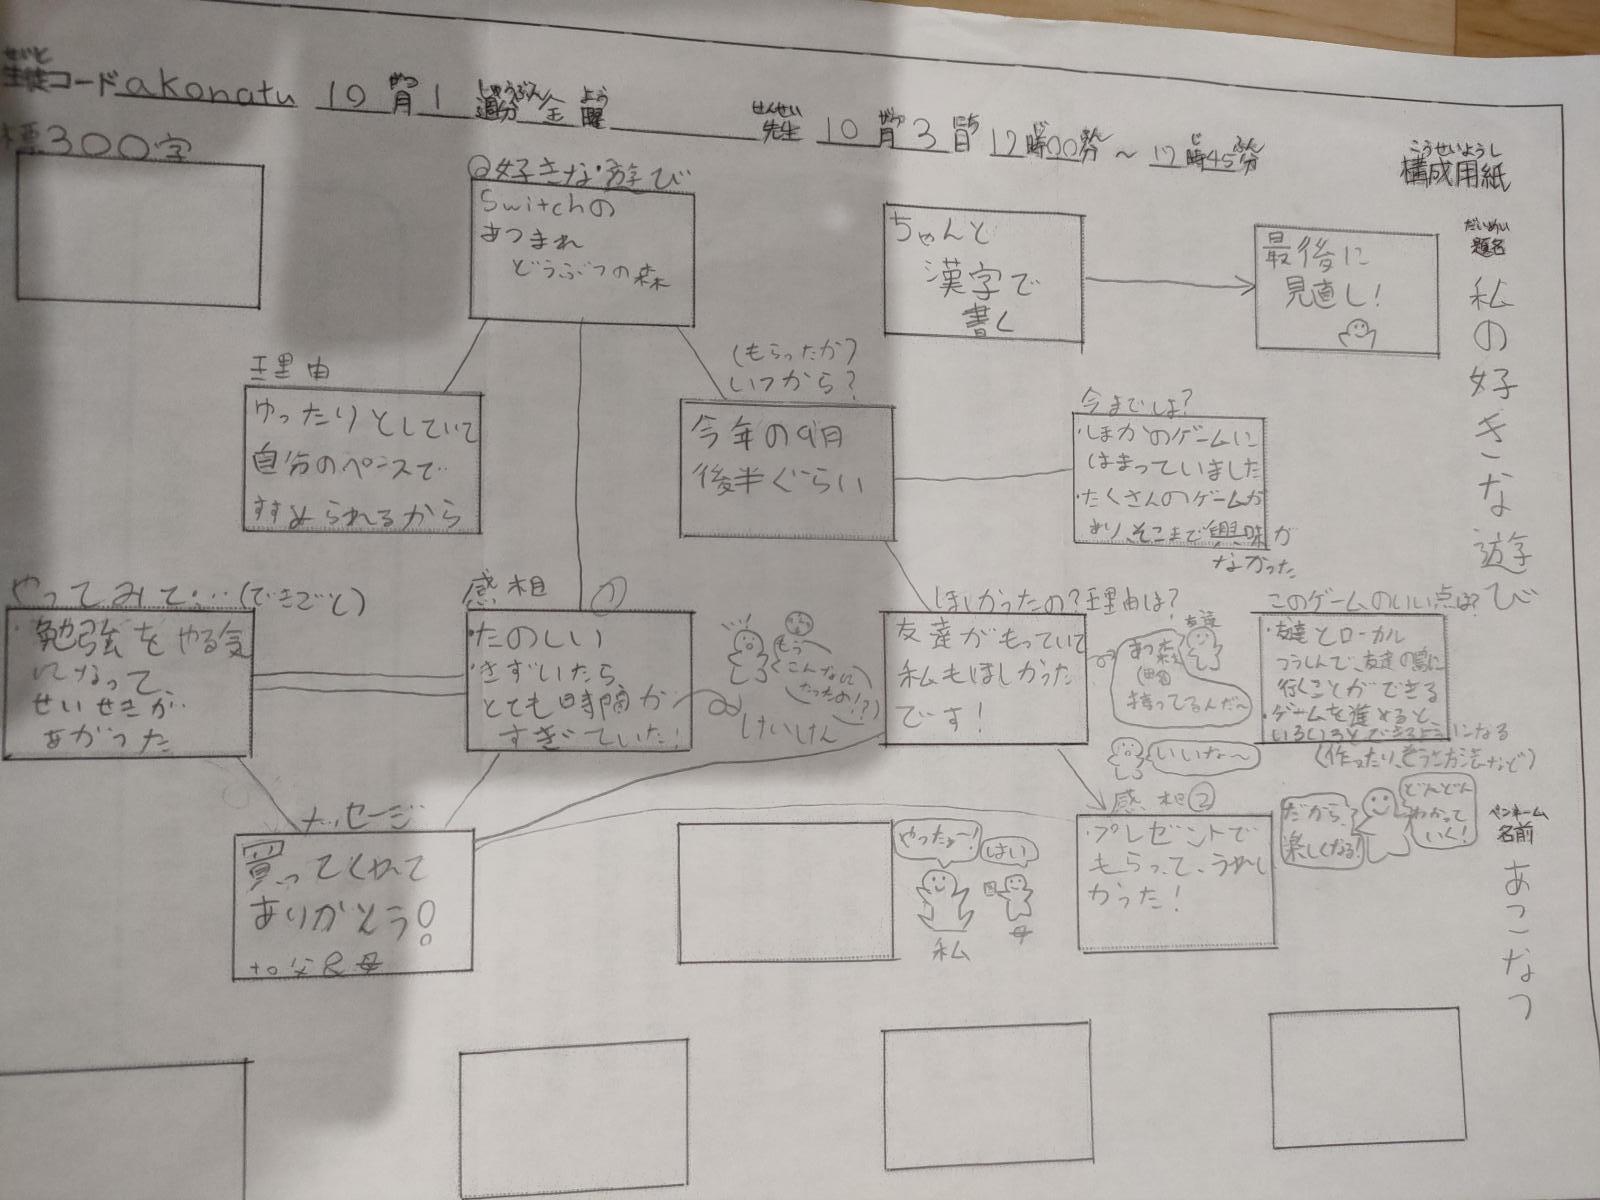 生徒コード akonatu 10月1週分 金曜 先生 10月3日 17時00分～17時45分
せいと
がつ
しゅうぶん
よう
せんせい
がつ
にち
じ
ふん
じ
ふん
300字
こうせいようし
構成用紙
だいめい
題名
私の好きな遊び
ペンネーム
名前
あこなつ
好きな遊び
Switchの
あつまれ
どうぶつの森
ちゃんと
漢字で
書く
最後に
見直し!
理由
ゆったりとしていて
自分のペースで
すすめられるから
(もらったか?
いつから?
今年の9月
後半ぐらい
今までは?
・ほかのゲームに
はまっていました
・たくさんのゲームが
あり、そこまで興味が
なかった
やってみて…(できごと)
・勉強をやる気
になって、
せいせきが
あがった
感想 ①
・たのしい
・きずいたら
とても時間が
すぎていた!
もう
こんなに
たったの!?
けいけん
ほしかったの?理由は?
友達がもっていて
私もほしかった
です!
友達
あつ森
持ってるんだ～
いいな～
このゲームのいい点は?
・友達とローカル
つうしんで、友達の島に
行くことができる
・ゲームを進めると、
いろいろとできるようになる
メッセージ
買ってくれて
ありがとう!
to父&母
やったぁー!
はい
私
母
感想②
・プレゼントで
もらって、うれし
かった!
だから、
楽しくなる!
どんどん
わかって
いく!